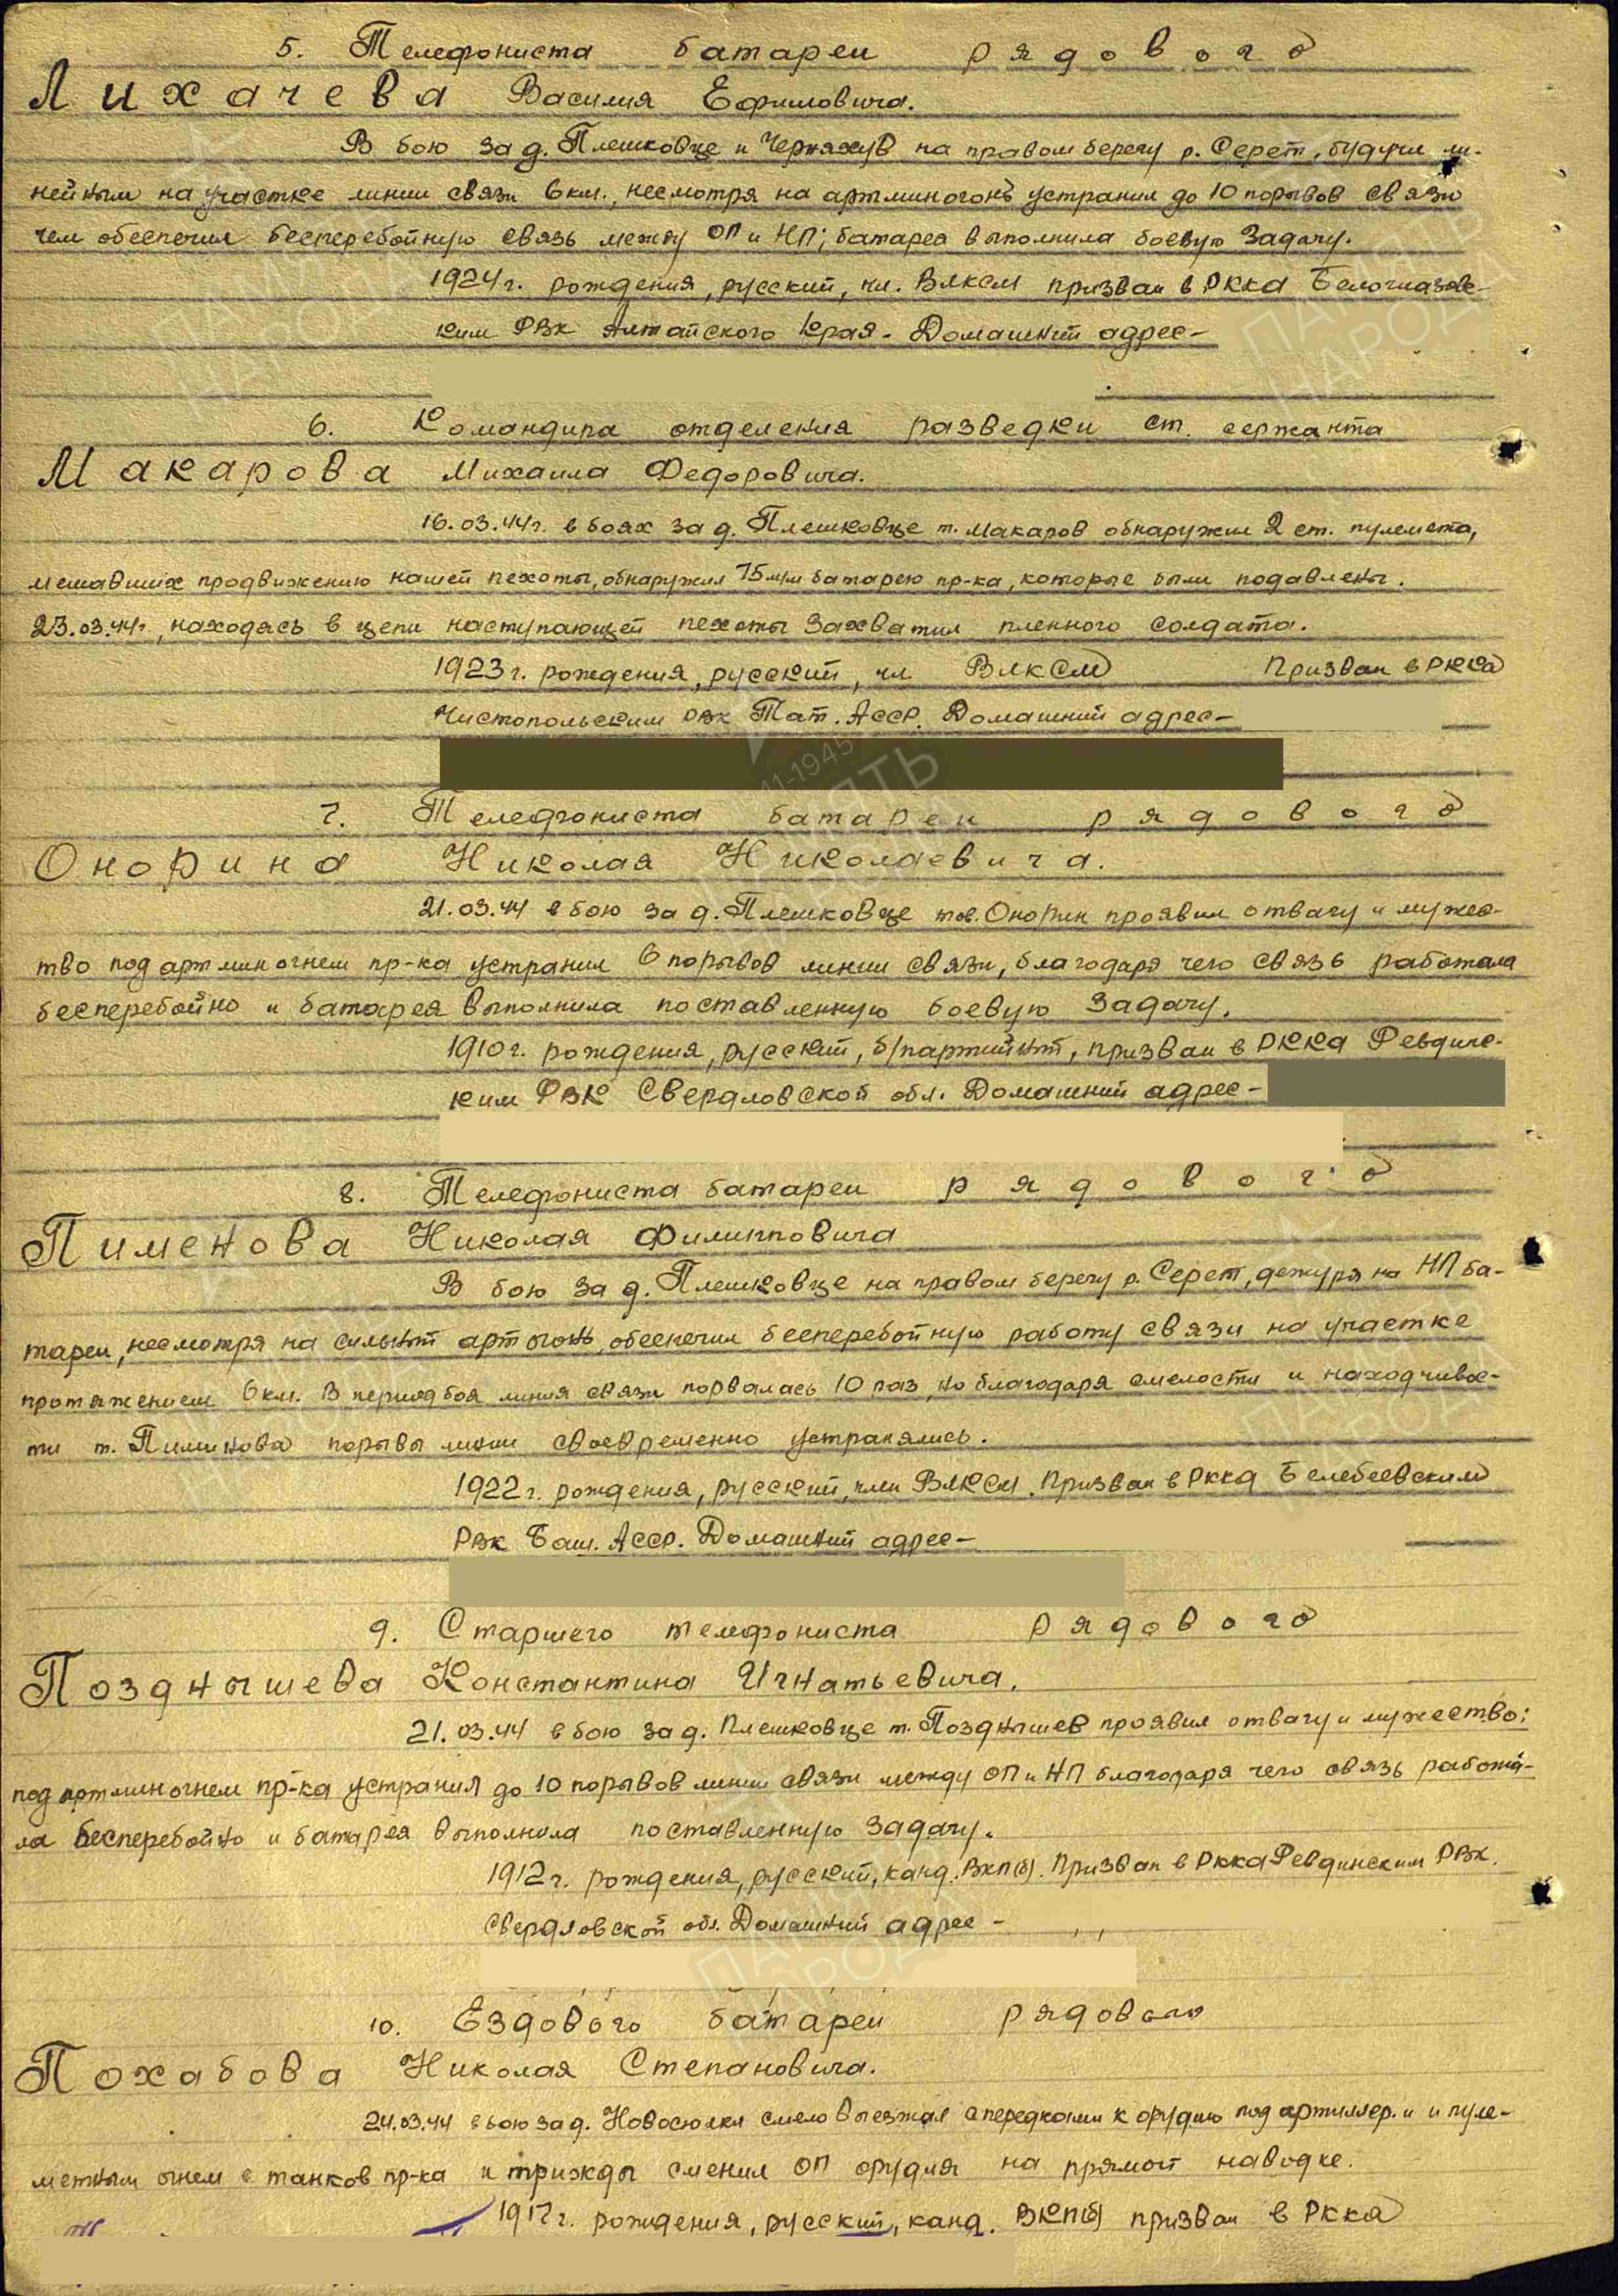 5. Телефониста батареи рядового
Лихачева Василия Ефимовича.
В бою за д. Плешковце и Черняхув на правом берегу р. Серет, будучи ли-
нейным на участке линии связи 6 км., несмотря на артминогонь устранил до 10 порывов связи
чем обеспечил бесперебойную связь между ОП и НП; батарея выполнила боевую задачу.
1924 г. рождения, русский, чл. ВЛКСМ призван в РККА Белоглазов-
ким РВК Алтайского Края - Домашний адрес -
6. Командира отделения разведки ст. сержанта
Макарова Михаила Федоровича.
16.03.44 г. в боях за д. Плешковце т. Макаров обнаружил 2 ст. пулемета,
мешавших продвижению нашей пехоты, обнаружил 75 м/м батарею пр-ка, которые были подавлены.
23.03.44 г, находясь в цепи наступающей пехоты захватил пленного солдата.
1923 г. рождения, русский, чл ВЛКСМ Призван в РККА
Чистопольским РВК Тат. АССР. Домашний адрес -
7. Телефониста батареи рядового
Онорина Николая Николаевича.
21.03.44 в бою за д. Плешковце тов. Онорин проявил отвагу и мужес-
тво под артминогнем пр-ка устранил 6 порывов линии связи, благодаря чего связь работала
бесперебойно и батарея выполнила поставленную боевую задачу.
1910 г. рождения, русский, б/партийный, призван в РККА Ревдинс-
ким РВК Свердловской обл. Домашний адрес -
8. Телефониста батареи рядового
Пименова Николая Филипповича
В бою за д. Плешковце на правом берегу р. Серет, дежуря на НП ба-
тареи, несмотря на сильный артогонь, обеспечил бесперебойную работу связи на участке
протяжением 6 км. В период боя линия связи порвалась 10 раз, но благодаря смелости и находчивос-
ти т. Пименова порывы линии своевременно устранялись.
1922 г. рождения, русский, член ВЛКСМ. Призван в РККА Белебеевским
РВК Баш. АССР. Домашний адрес -
9. Старшего телефониста рядового
Позднышева Константина Игнатьевича.
21.03.44 в бою за д. Плешковце т. Позднышев проявил отвагу и мужество:
под артминогнем пр-ка устранил до 10 порывов линии связи между ОП и НП благодаря чего связь работа-
ла бесперебойно и батарея выполнила поставленную задачу.
1912 г. рождения, русский, канд. ВКП(б). Призван в РККА Ревдинским РВК.
Свердловской обл. Домашний адрес -
10. Ездового батареи рядового
Похабова Николая Степановича.
24.03.44 в бою за д. Новосюлки смело выезжал с передками к орудию под артиллер. и и пуле-
метным огнем с танков пр-ка и трижды сменил ОП орудия на прямой наводке.
1917 г. рождения, русский, канд. ВКП(б) призван в РККА